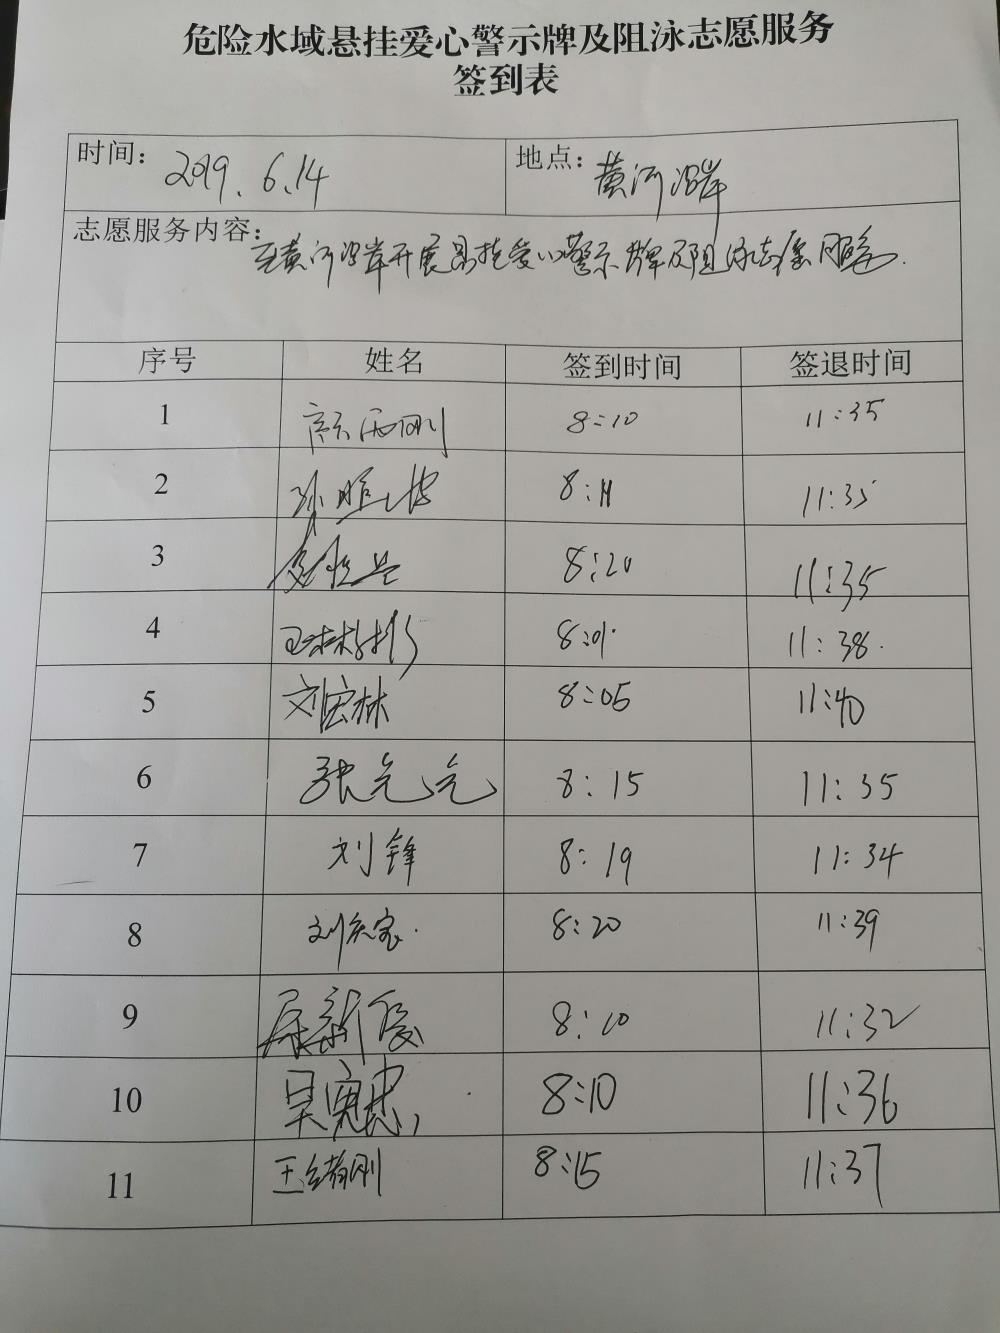 危险水域悬挂爱心警示牌及阻泳志愿服务
签到表
时间: 2019.6.14 地点: 黄河沿岸
志愿服务内容: 至黄河沿岸开展悬挂爱心警示牌及阻泳志愿服务.
序号 姓名 签到时间 签退时间
1 8:10 11:35
2 8:11 11:35
3 8:20 11:35
4 8:01 11:38
5 刘宏林 8:05 11:40
6 张元元 8:15 11:35
7 刘锋 8:19 11:34
8 8:20 11:39
9 8:10 11:32
10 8:10 11:36
11 王绪刚 8:15 11:37